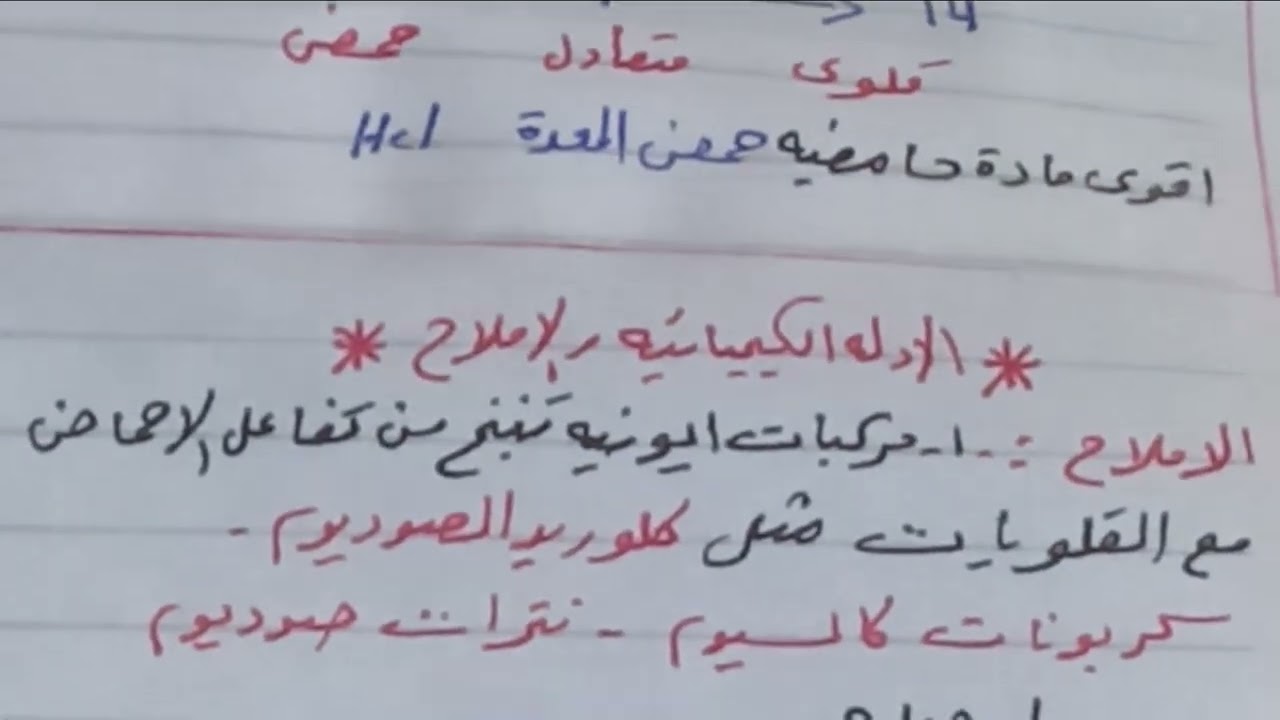 14
قلوى متعادل حمض
اقوى مادة حامضيه حمض المعدة Hcl
* الادله الكيميائيه والاملاح *
الاملاح :- ١- مركبات ايونيه تنتج من تفاعل الاحماض
مع القلويات مثل كلوريد الصوديوم -
كربونات كالسيوم - نترات صوديوم